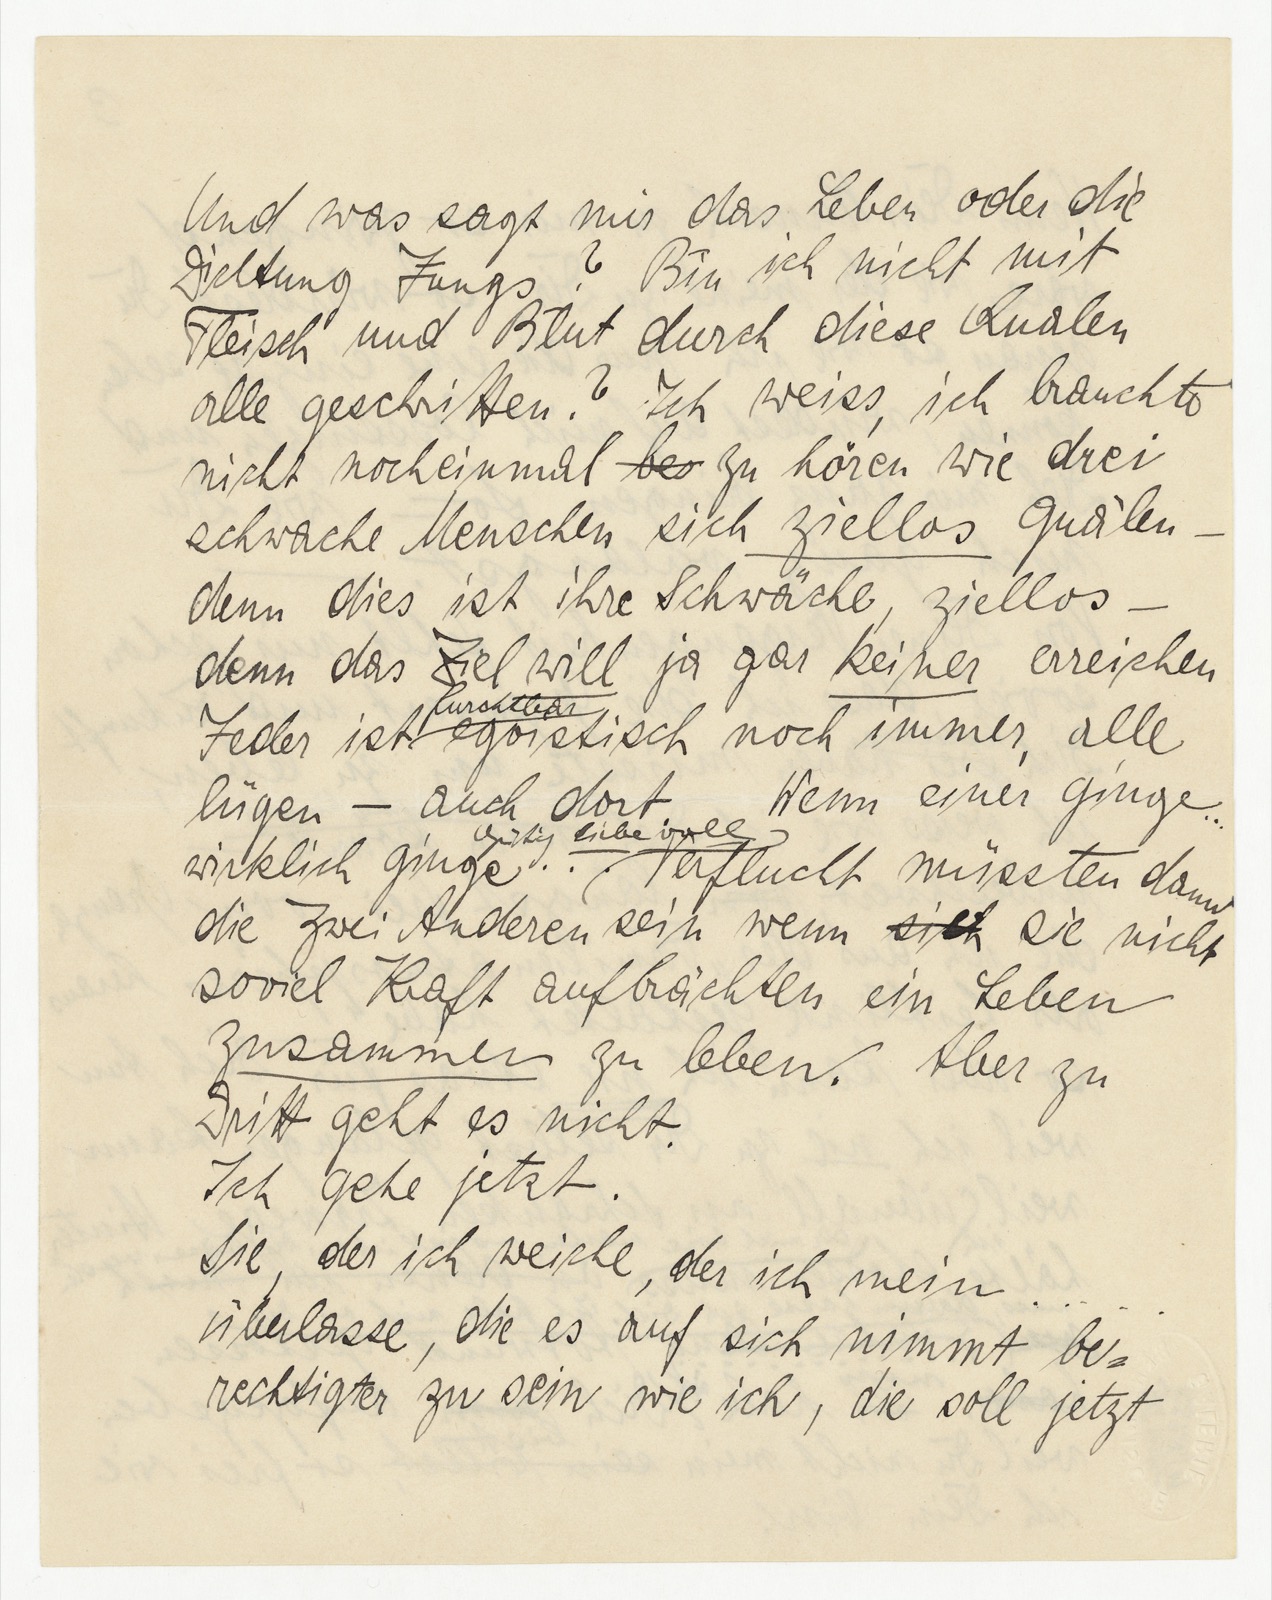 Und was sagt mir das Leben oder die
Dichtung Jungs? Bin ich nicht mit
Fleisch und Blut durch diese Qualen
alle geschritten? Ich weiss, ich brauchte
nicht nocheinmal bes zu hören wie drei
schwache Menschen sich ziellos quälen –
denn dies ist ihre Schwäche, ziellos –
denn das Ziel will ja gar keiner erreichen
furchtbar
Jeder ist egoistisch noch immer, alle
lügen – auch dort Wenn einer ginge...
gütig liebevoll
wirklich ginge... Verflucht müssten dann
die zwei Anderen sein wenn sich sie nicht
soviel Kraft aufbrächten ein Leben
zusammen zu leben. Aber zu
Dritt geht es nicht.
Ich gehe jetzt.
Sie, der ich weiche, der ich mein .....
überlasse, die es auf sich nimmt be=
rechtigter zu sein wie ich, die soll jetzt